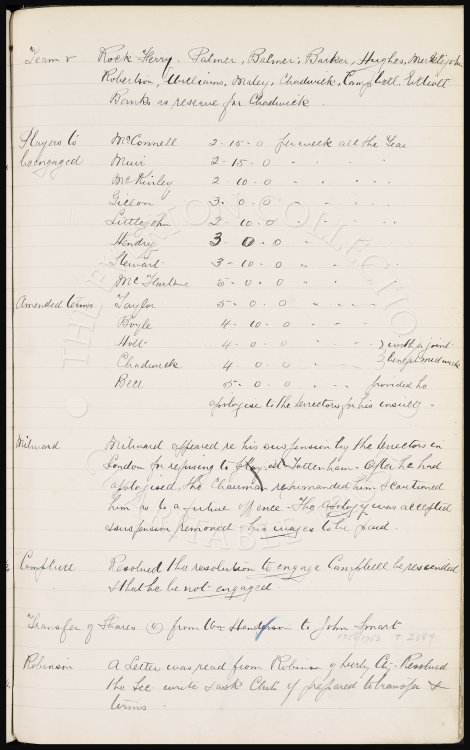 Team v Rock Ferry. Palmer, Balmer, Barker, Hughes, Meiklejohn
Robertson, Williams, Maley, Chadwick, Campbell, Elliott
Banks as reserve for Chadwick.
Players to McConnell 2-15-0 per week all the Year
be engaged Muir 2-15-0 " " " "
McKinley 2-10-0 " " " "
Gillon 3-0-0 " " " "
Littlejohn 2-10-0 " " " "
Hendry 3-0-0 " " "
Stewart 3-10-0 " " "
McFarlane 5-0-0 " " "
Amended terms Taylor 5-0-0 " " "
Boyle 4-10-0 " " "
Holt 4-0-0 " " " with a joint
Chadwick 4-0-0 " " " benefit next week
Bell 5-0-0 " " provided he
apologise to the directors for his insults -
Milward Milward appeared re his suspension by the directors in
London for refusing to play at Tottenham. After he had
apologised, the Chairman reprimanded him & cautioned
him as to a future offence - The apology was accepted
& suspension removed - his wages to be paid.
Campbell Resolved the resolution to engage Campbell be rescinded
& that he be not engaged.
Transfer of Shares (4) from Wm Henderson to John Smart
1750/1753 + 2089
Robinson A Letter was read from Robinson of Derby Cty - Resolved
the Sec write & ask Club if prepared to transfer &
terms
THE EVERTON COLLECTION
CHARITABLE